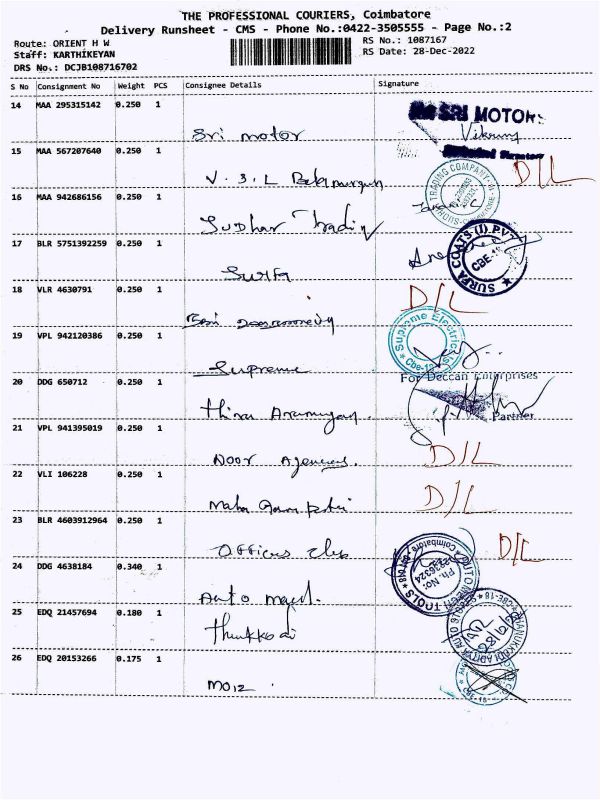 THE PROFESSIONAL COURIERS, Coimbatore
Delivery Runsheet - CMS - Phone No.:0422-3505555 - Page No.:2
Route: ORIENT H W
RS No.: 1087167
Staff: KARTHIKEYAN
RS Date: 28-Dec-2022
DRS No.: DCJB108716702
S No Consignment No Weight PCS Consignee Details Signature
14 MAA 295315142 0.250 1
Sri motor
SRI MOTOR
15 MAA 567207640 0.250 1
V. S. L
D/L
16 MAA 942686156 0.250 1
Sudhar Trading
TRADING COMPANY
17 BLR 5751392259 0.250 1
Surfa
SURFA COATS (I) PVT CBE-18
18 VLR 4630791 0.250 1
D/L
19 VPL 942120386 0.250 1
Supreme
Supreme Electricals Cbe-18
20 DDG 650712 0.250 1
Thiru Arumugam.
For Deccan Enterprises
Partner
21 VPL 941395019 0.250 1
Noor Agencies.
D/L
22 VLI 106228 0.250 1
Maha Ganpathi
D/L
23 BLR 4603912964 0.250 1
Officers club
D/L
24 DDG 4638184 0.340 1
Auto
AUTO TECH TOOLS Coimbatore Ph. No:
25 EDQ 21457694 0.180 1
Thukkodi
26 EDQ 20153266 0.175 1
Moiz